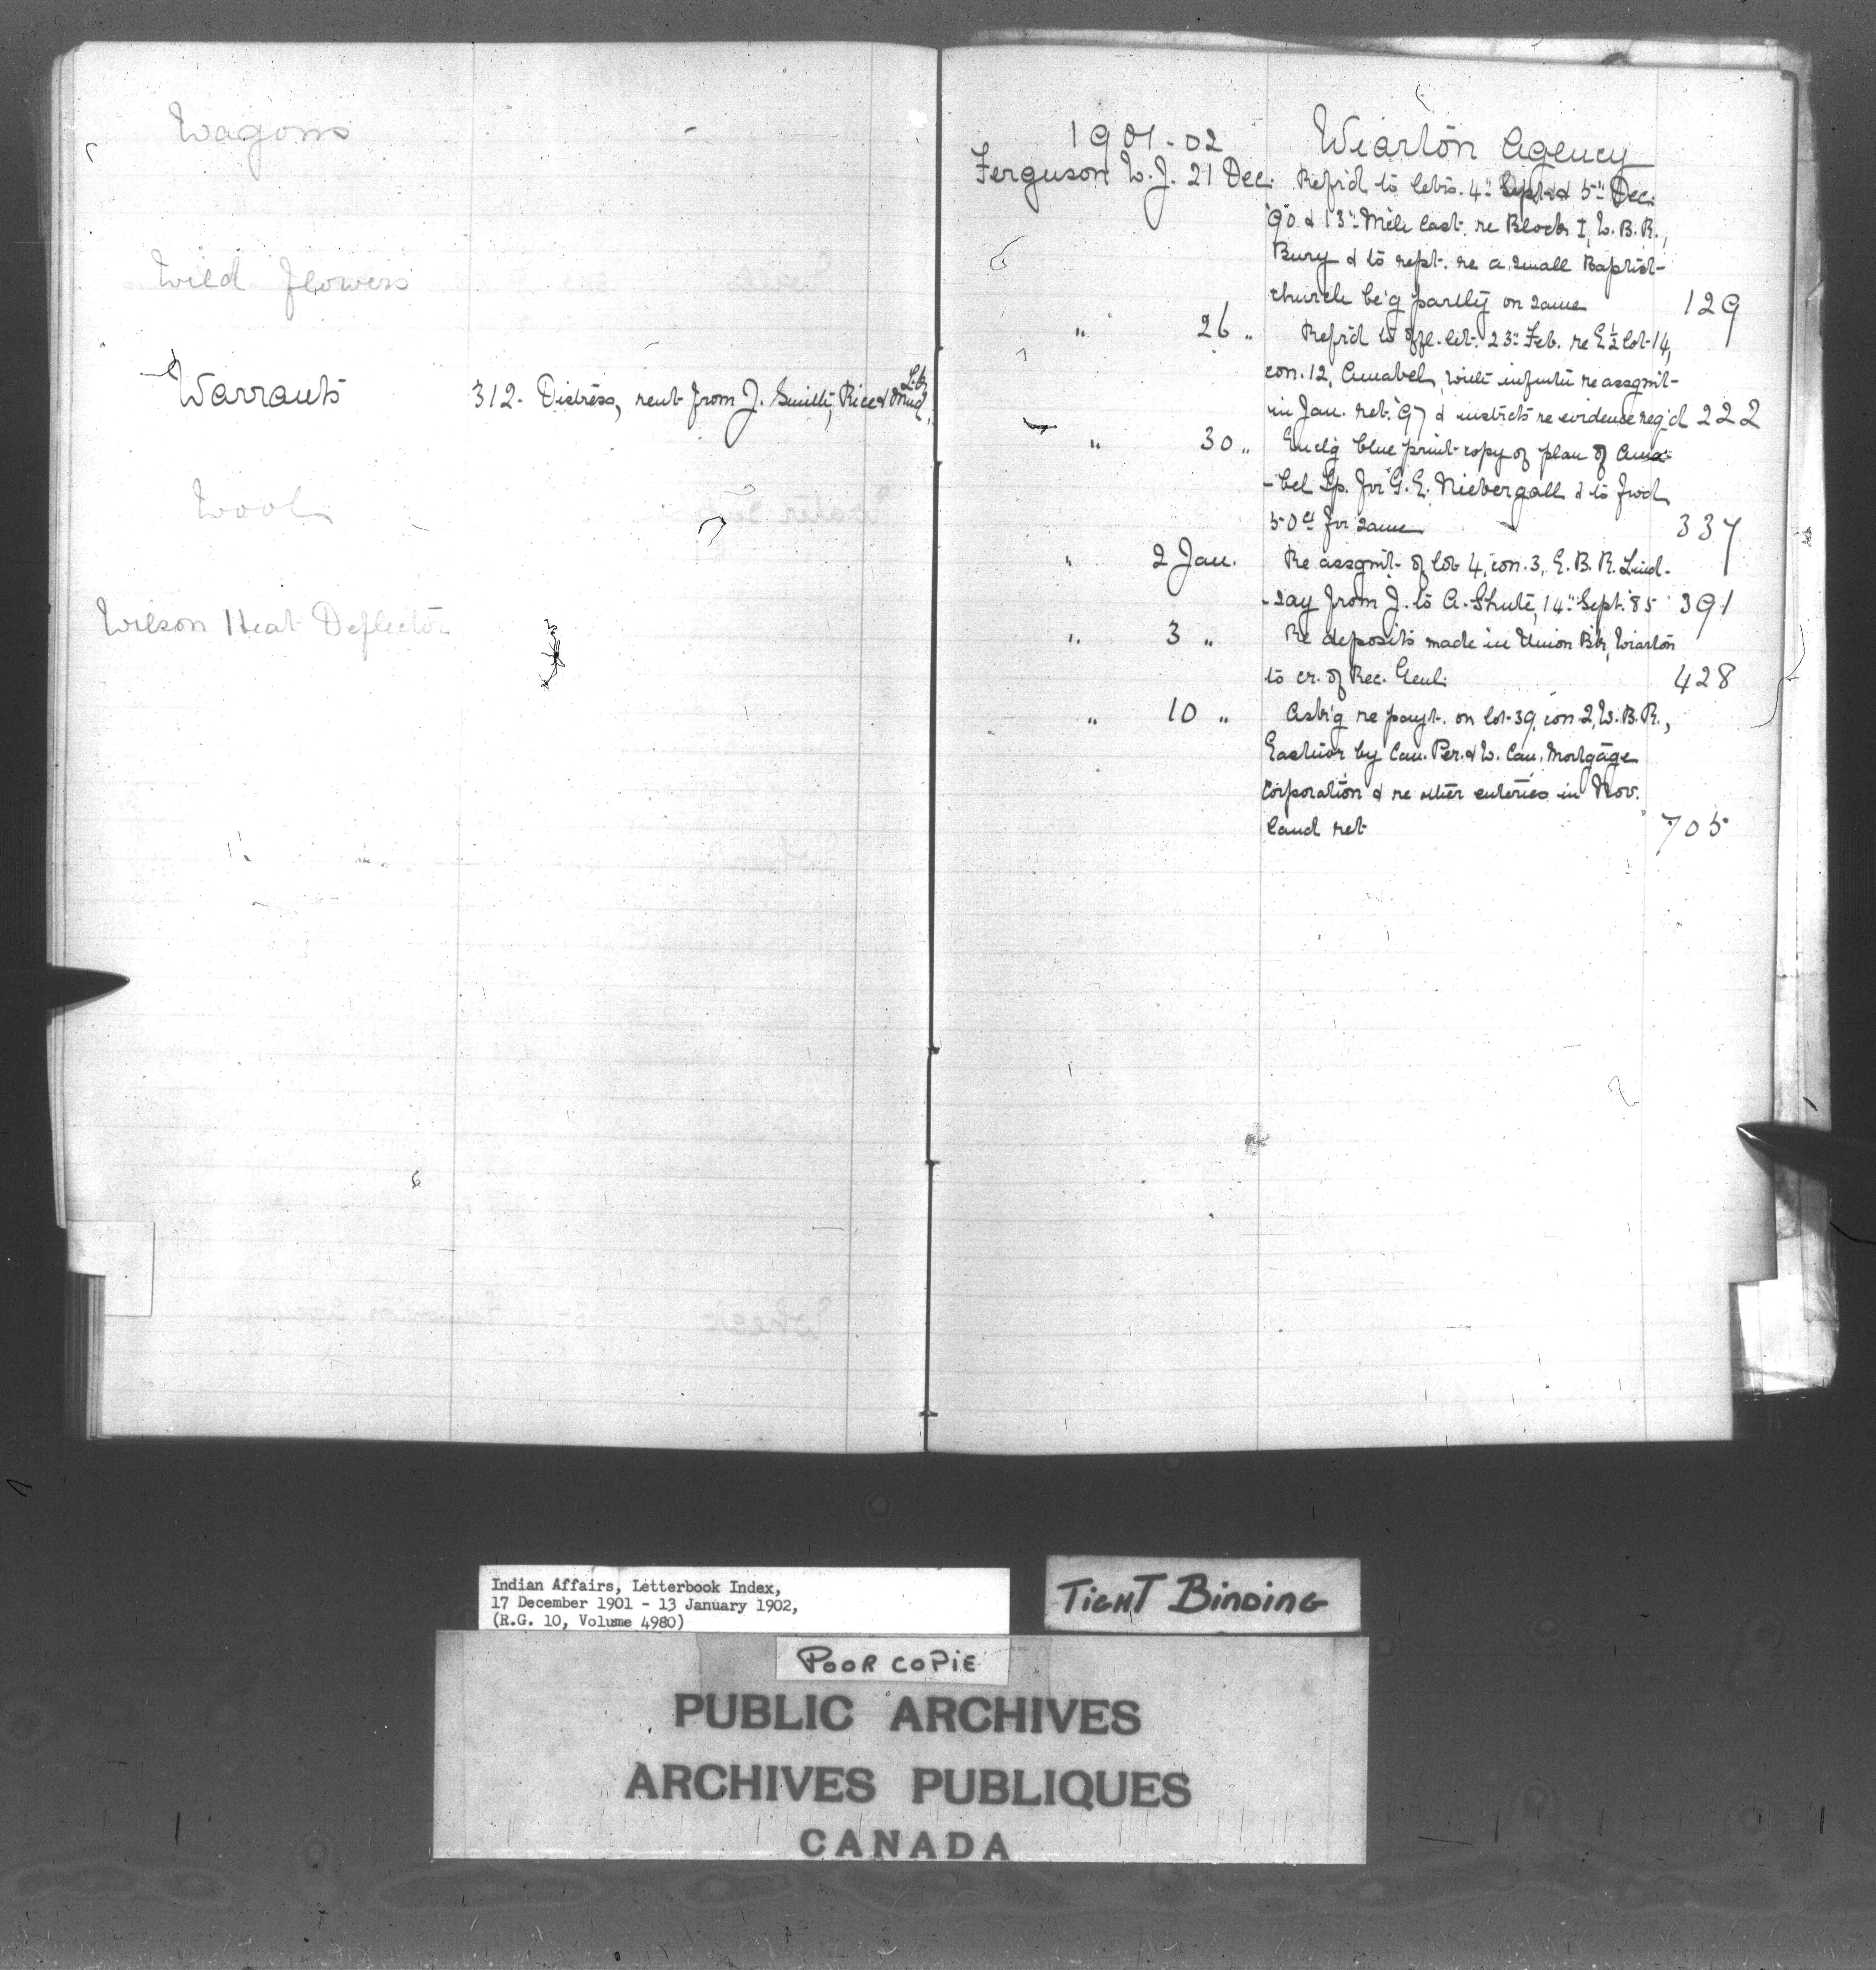 Wagons
Wild flowers
Warrants 312. Distress, rent from J. Smith, Rice & Mud Lk.
Wool
Wilson Heat Deflector
1901-02 Wiarton Agency
Ferguson W. J. 21 Dec. Ref'd to letrs. 4" Sept. & 5" Dec.
'90 & 13" Mch last. re Block I, W. B. R.,
Bury & to rept. re a small Baptist
church be'g partly on same 129
" 26 " Ref'd to offl. let. 23" Feb. re E½ lot 14,
con. 12, Amabel, with re assgmt
in Jan. ret. '97 & instrcts re evidence req'd 222
" 30 " Encl'g blue print copy of plan of Ama-
-bel Tp. for G. E. Niebergall & to fwd
50cts for same 337
" 2 Jan. Re assgmt of lot 4, con. 3, E. B. R. Lind-
-say from J. to A. Shute, 14" Sept. '85 391
" 3 " Re deposits made in Union Bk, Wiarton
to cr. of Rec. Genl. 428
" 10 " Ask'g re payt. on lot 39, con 2, W. B. R.,
Eastnor by Can. Per. & W. Can. Mortgage
Corporation & re other enteries in Nov.
land ret 705
Indian Affairs, Letterbook Index,
17 December 1901 - 13 January 1902,
(R.G. 10, Volume 4980)
TIGHT BINDING
POOR COPIE
PUBLIC ARCHIVES
ARCHIVES PUBLIQUES
CANADA